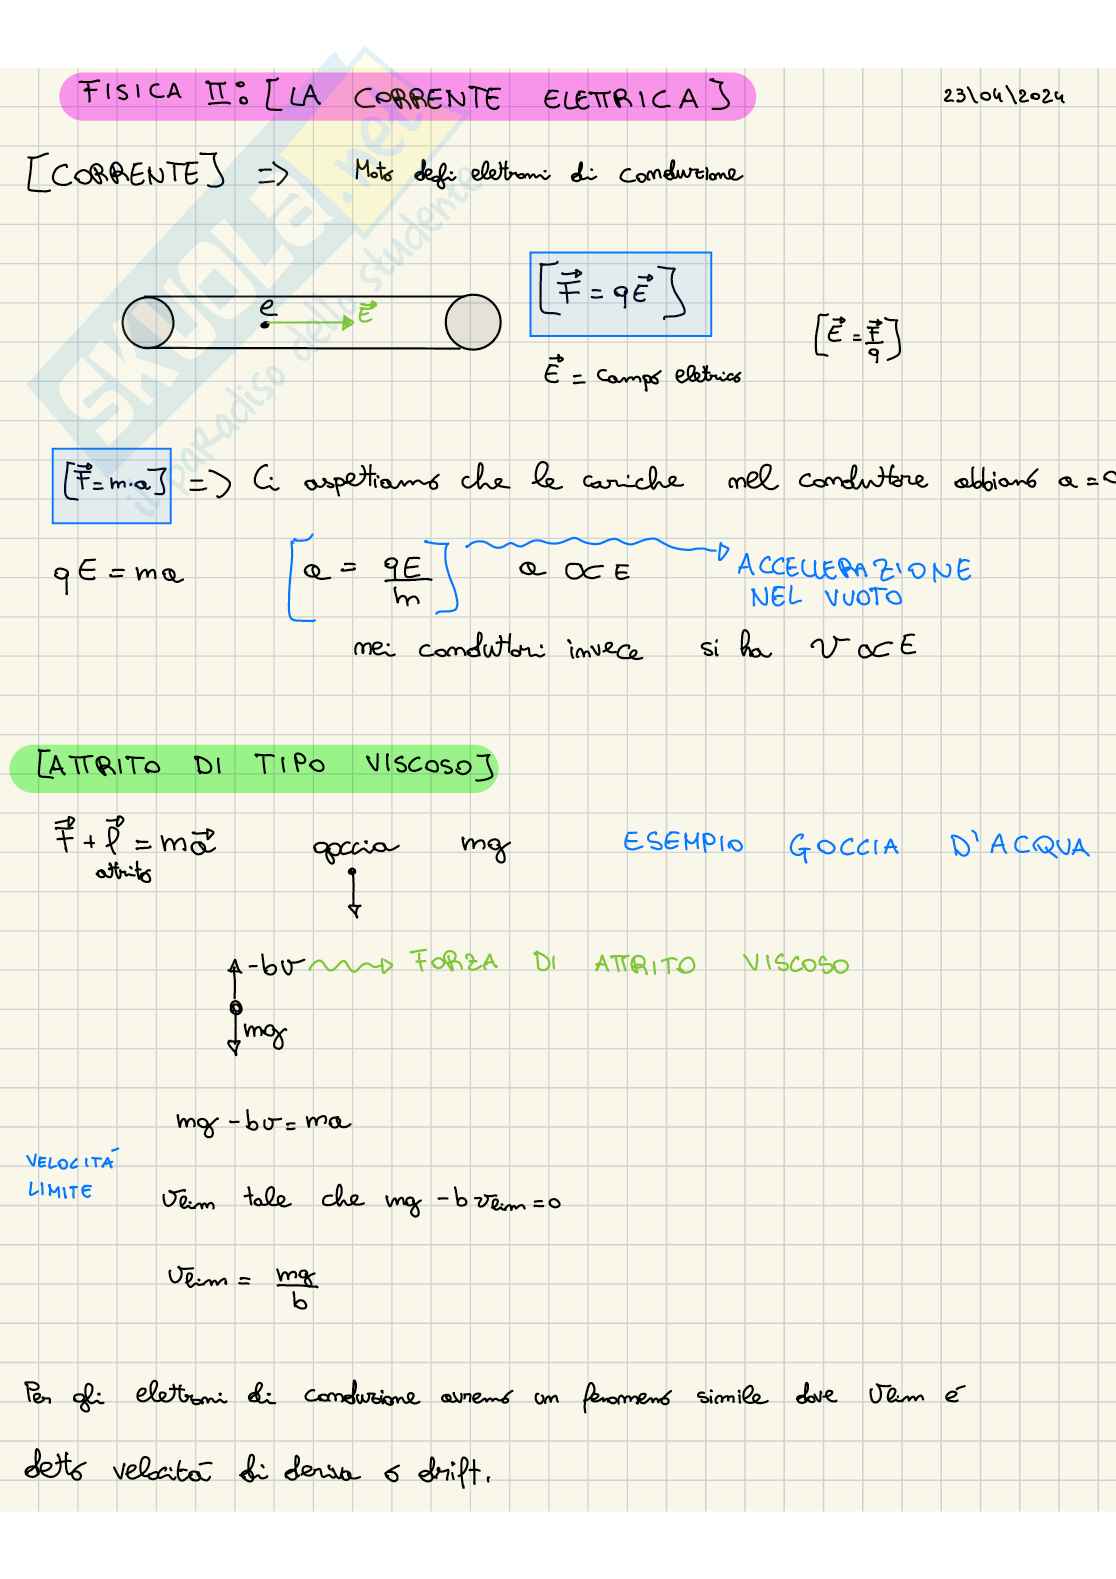 FISICA II: [LA CORRENTE ELETTRICA]
23\04\2024
[CORRENTE] => Moto degli elettroni di conduzione
SKUOLA.net
il paradiso dello studente
e E⃗
[F⃗ = qE⃗]
[E⃗ = F⃗/q]
E⃗ = campo elettrico
[F⃗ = m·a] => Ci aspettiamo che le cariche nel conduttore abbiano a =
qE = ma [a = qE/m] a ∝ E ACCELLERAZIONE
NEL VUOTO
nei conduttori invece si ha v ∝ E
[ATTRITO DI TIPO VISCOSO]
F⃗ + f⃗ = ma⃗ goccia mg ESEMPIO GOCCIA D'ACQUA
attrito
-bv FORZA DI ATTRITO VISCOSO
mg
mg - bv = ma
VELOCITÀ
LIMITE
vlim tale che mg - b vlim = 0
vlim = mg/b
Per gli elettroni di conduzione avremo un fenomeno simile dove vlim é
detto velocità di deriva o drift.